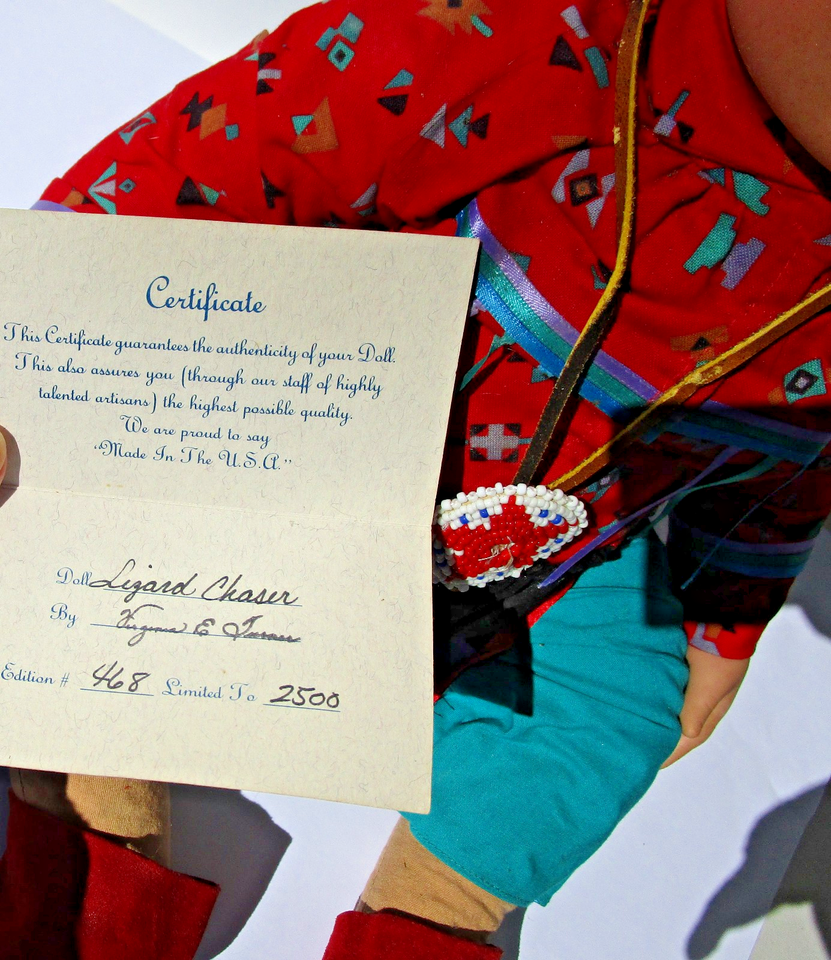 Certificate
This Certificate guarantees the authenticity of your Doll.
This also assures you (through our staff of highly
talented artisans) the highest possible quality.
We are proud to say
"Made In The U.S.A."
Doll Lizard Chaser
By Virginia E Turner
Edition # 468 Limited To 2500